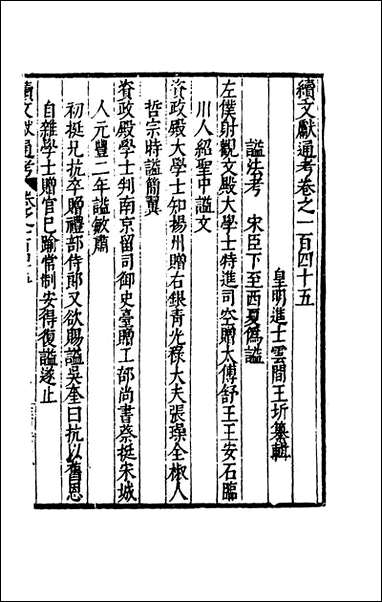 續文獻通考卷之一百四十五
皇明進士雲間王圻纂輯
謚法考　宋臣下至西夏僞謚
左僕射觀文殿大學士特進司空贈太傅舒王王安石臨
川人紹聖中謚文
資政殿大學士知揚州贈右銀青光祿大夫張璪全椒人
哲宗時謚簡翼
資政殿學士判南京留司御史臺贈工部尚書蔡挺宋城
人元豐二年謚敏肅
初挺兄抗卒贈禮部侍郎又欲賜謚吳奎曰抗以舊恩
自雜學士贈官已踰常制安得復謚遂止
續文獻通考